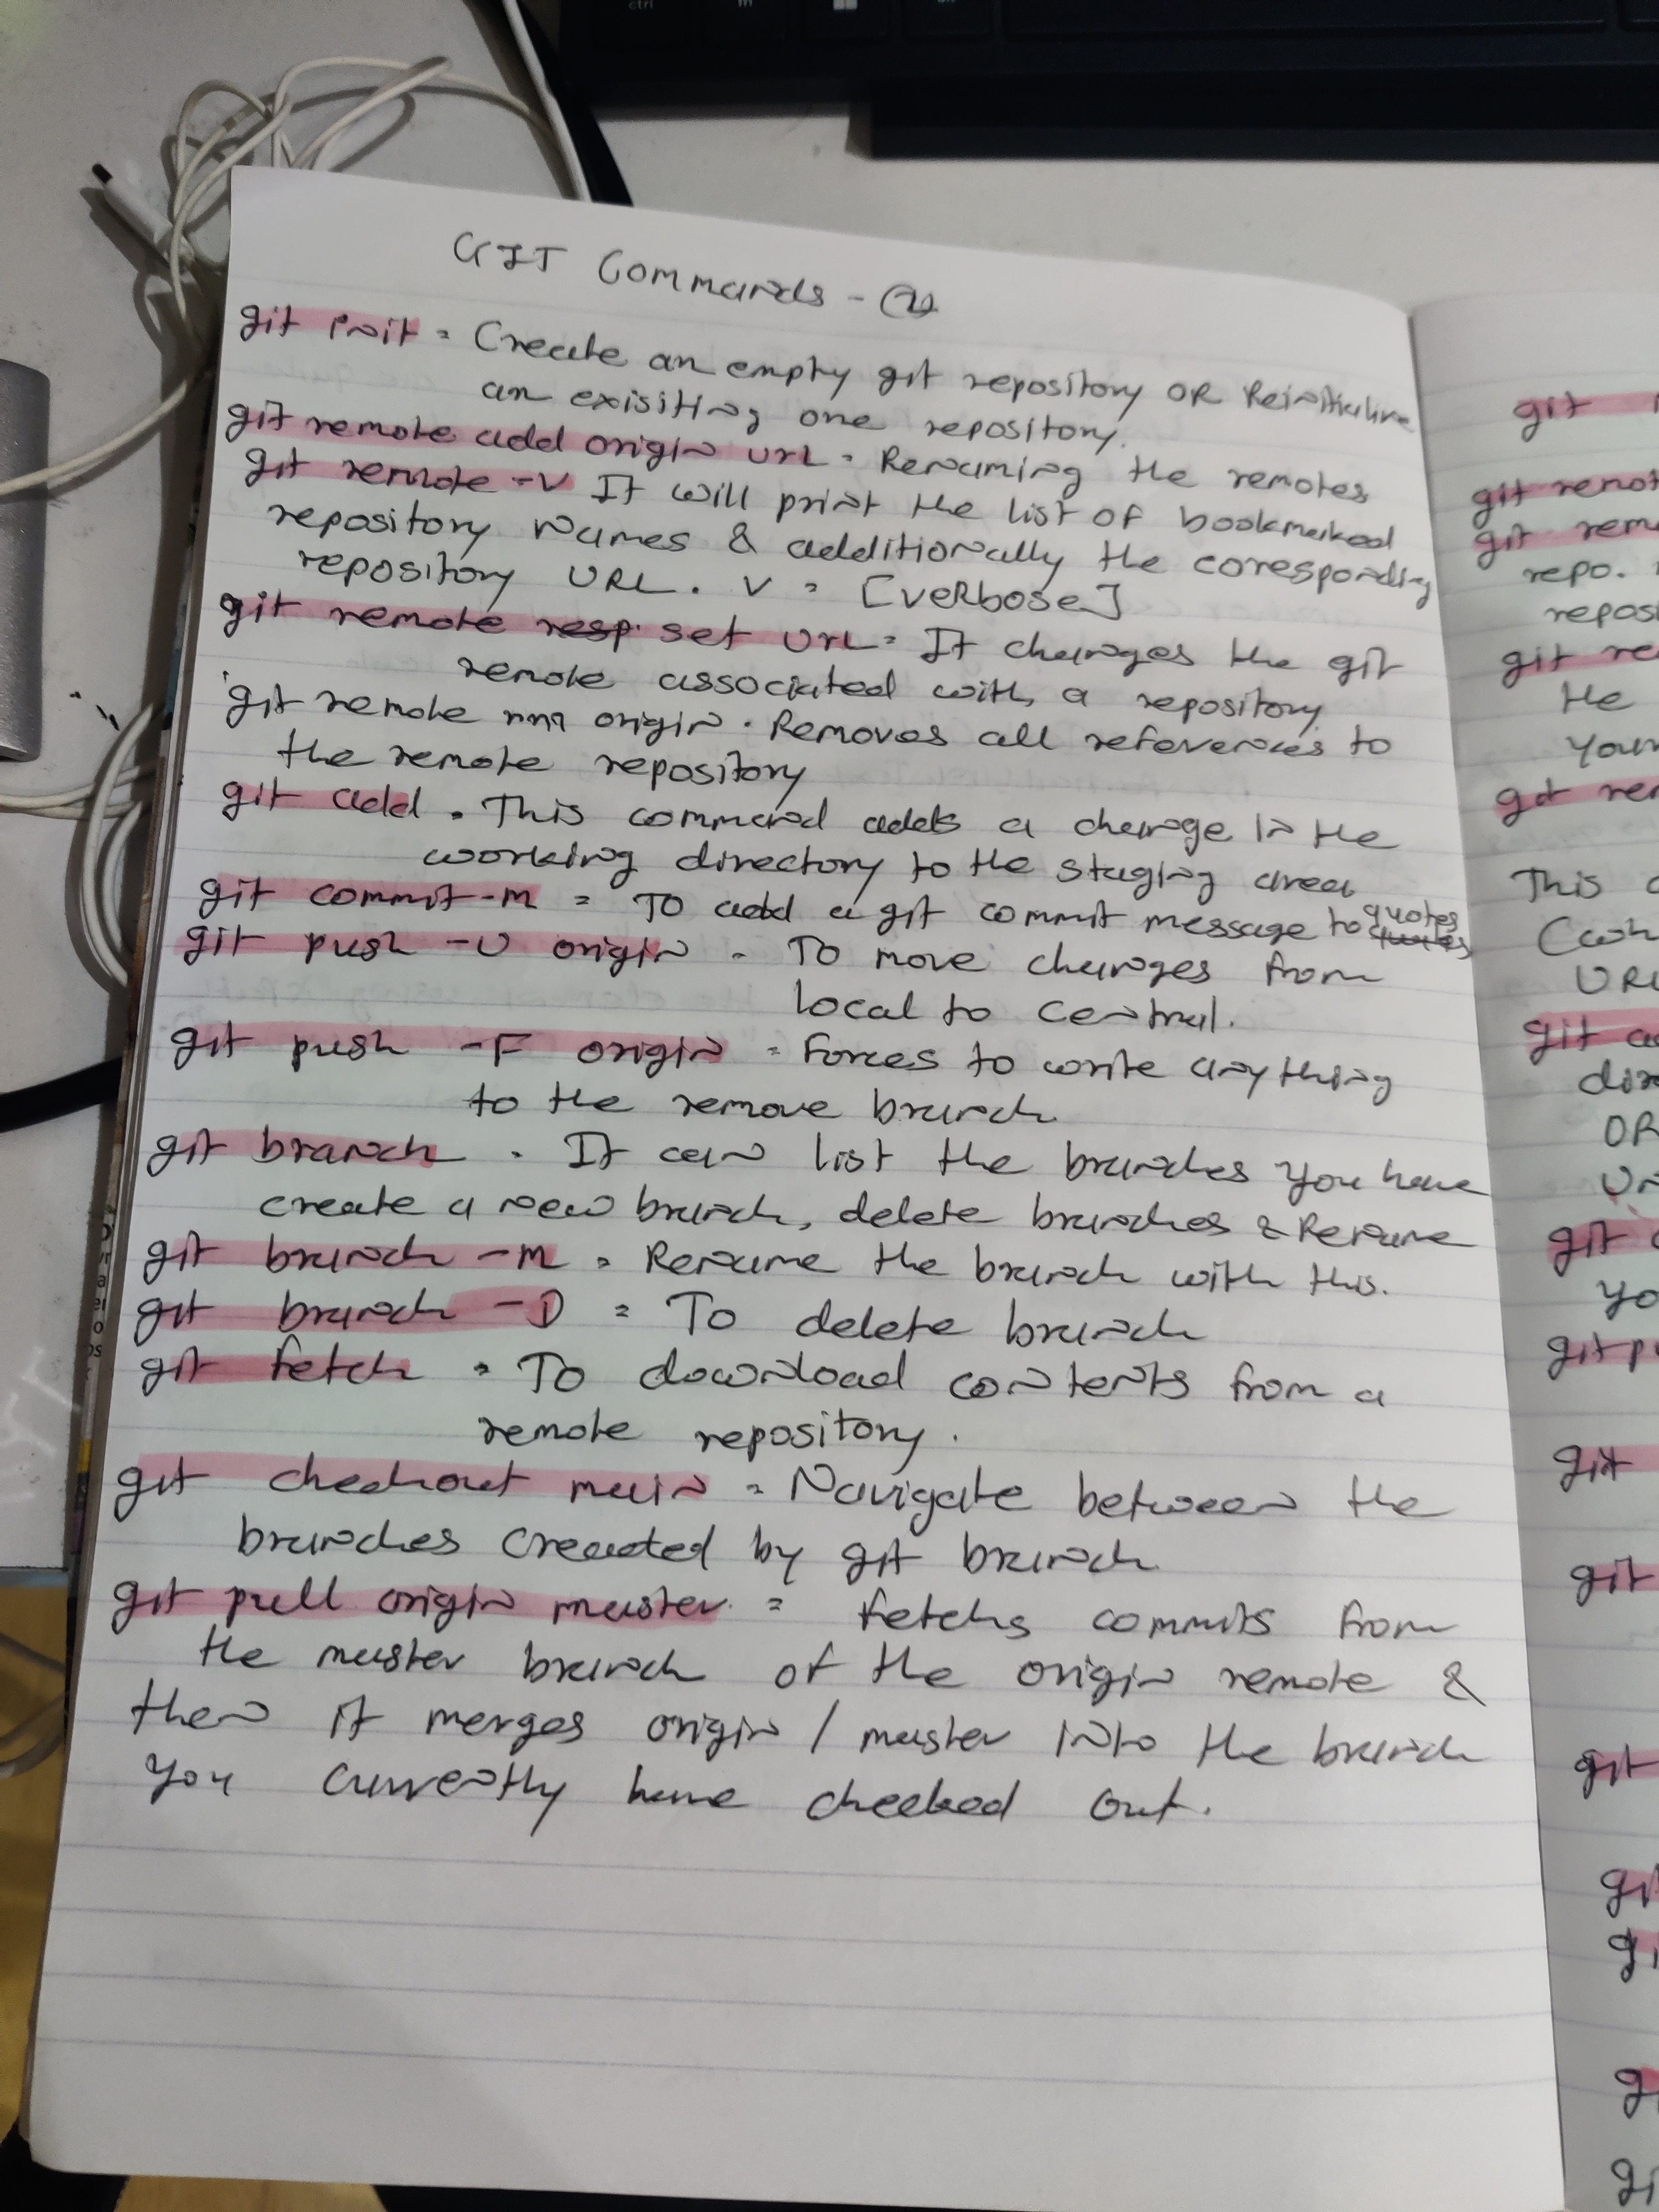 GIT Commands -
git init = Create an empty git repository OR Reinitialize
an exisiting one repository.
git remote add origin URL = Renaming the remotes
git remote -V It will print the list of bookmarked
repository names & additionally the coresponding
repository URL. V = [veRbose]
git remote resp. set URL = It changes the git
remote associated with a repository
git remote origin . Removes all references to
the remote repository
git add . This command adds a change in the
working directory to the staging area
git commit -m = To add a git commit message to quotes
git push -U origin = To move changes from
local to central.
git push -F origin = Forces to write anything
to the remove branch
git branch . It can list the branches you have
create a new branch, delete branches & Rename
git branch -m = Rename the branch with this.
git branch -D = To delete branch
git fetch = To download contents from a
remote repository.
git checkout main = Navigate between the
branches created by git branch
git pull origin master = fetchs commits from
the master branch of the origin remote &
then it merges origin / master into the branch
you currently have checked out.
git
git remot
git rem
repo.
repos
git re
the
your
git rem
This
URL
git
OR
git
yo
git p
git
git
git
ctrl